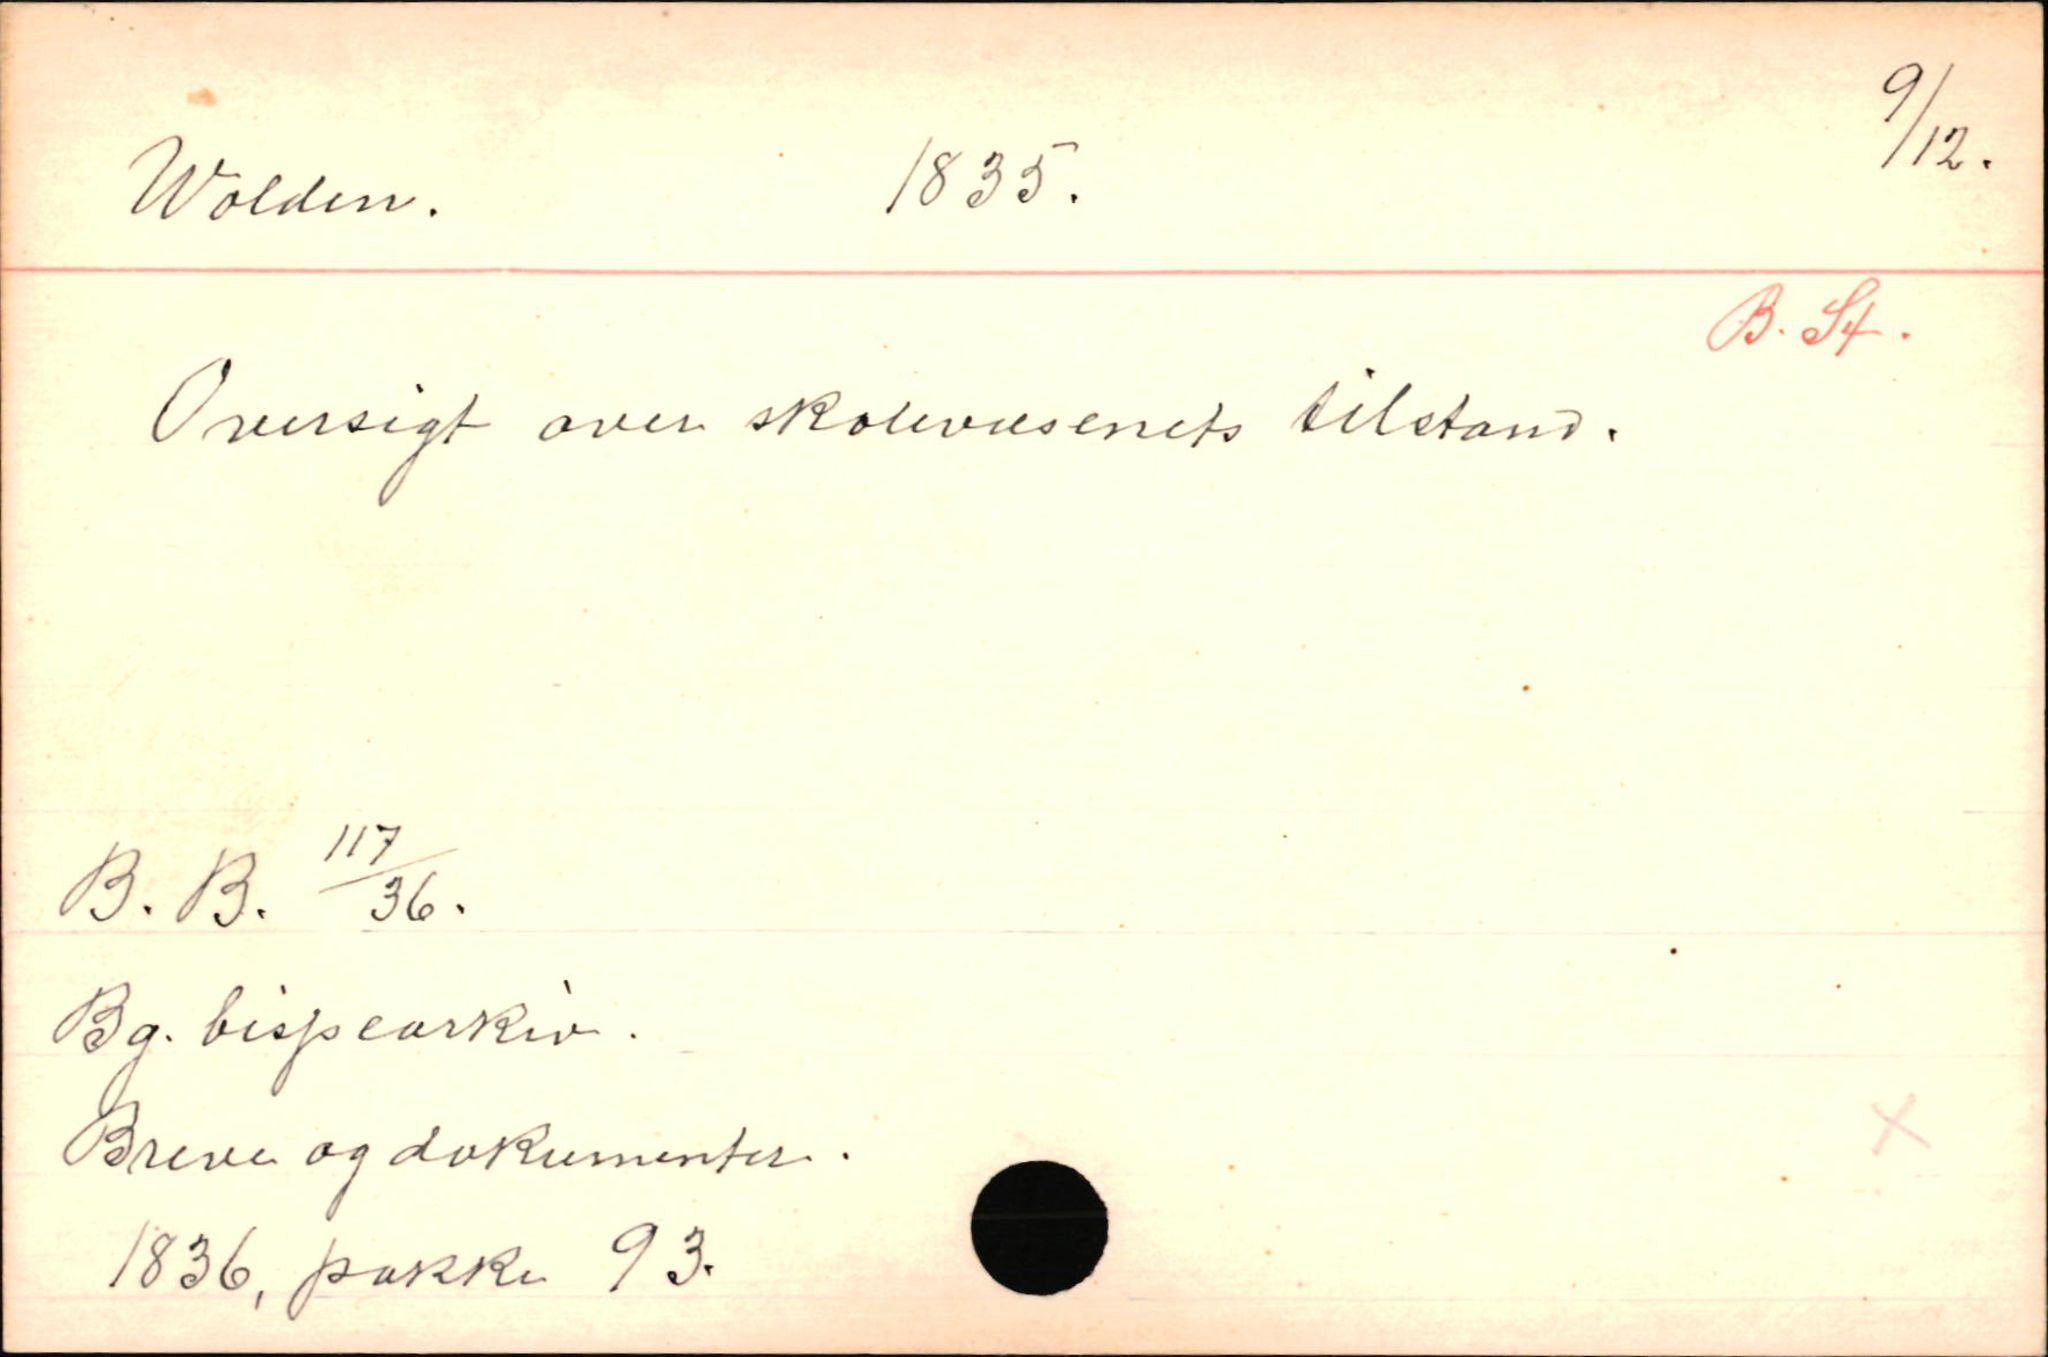 Wolden. 1835. 9/12.
B. St.
Oversigt over skolevæsenets tilstand.
B. B. 117/36.
Bg. bispearkiv.
Breve og dokumenter.
1836, pakke 93.
X